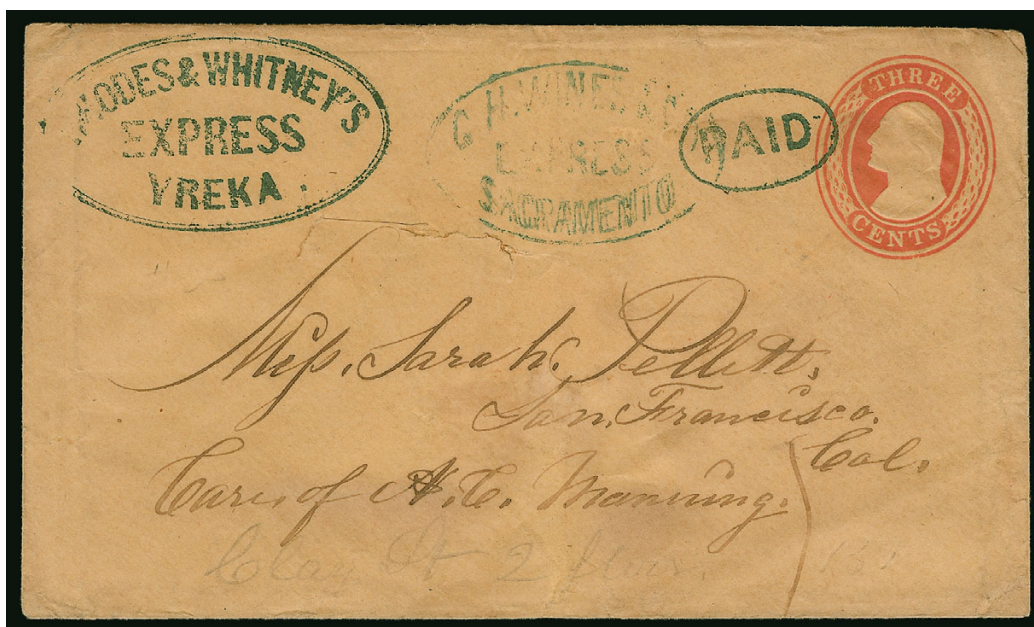 RHODES & WHITNEY'S
EXPRESS
YREKA.
C. H. WINES & CO'S
EXPRESS
SACRAMENTO
PAID
THREE
CENTS
Miss. Sarah. Pellett.
San. Francisco.
Cal.
Care. of A. C. Manning.
Clay St 2